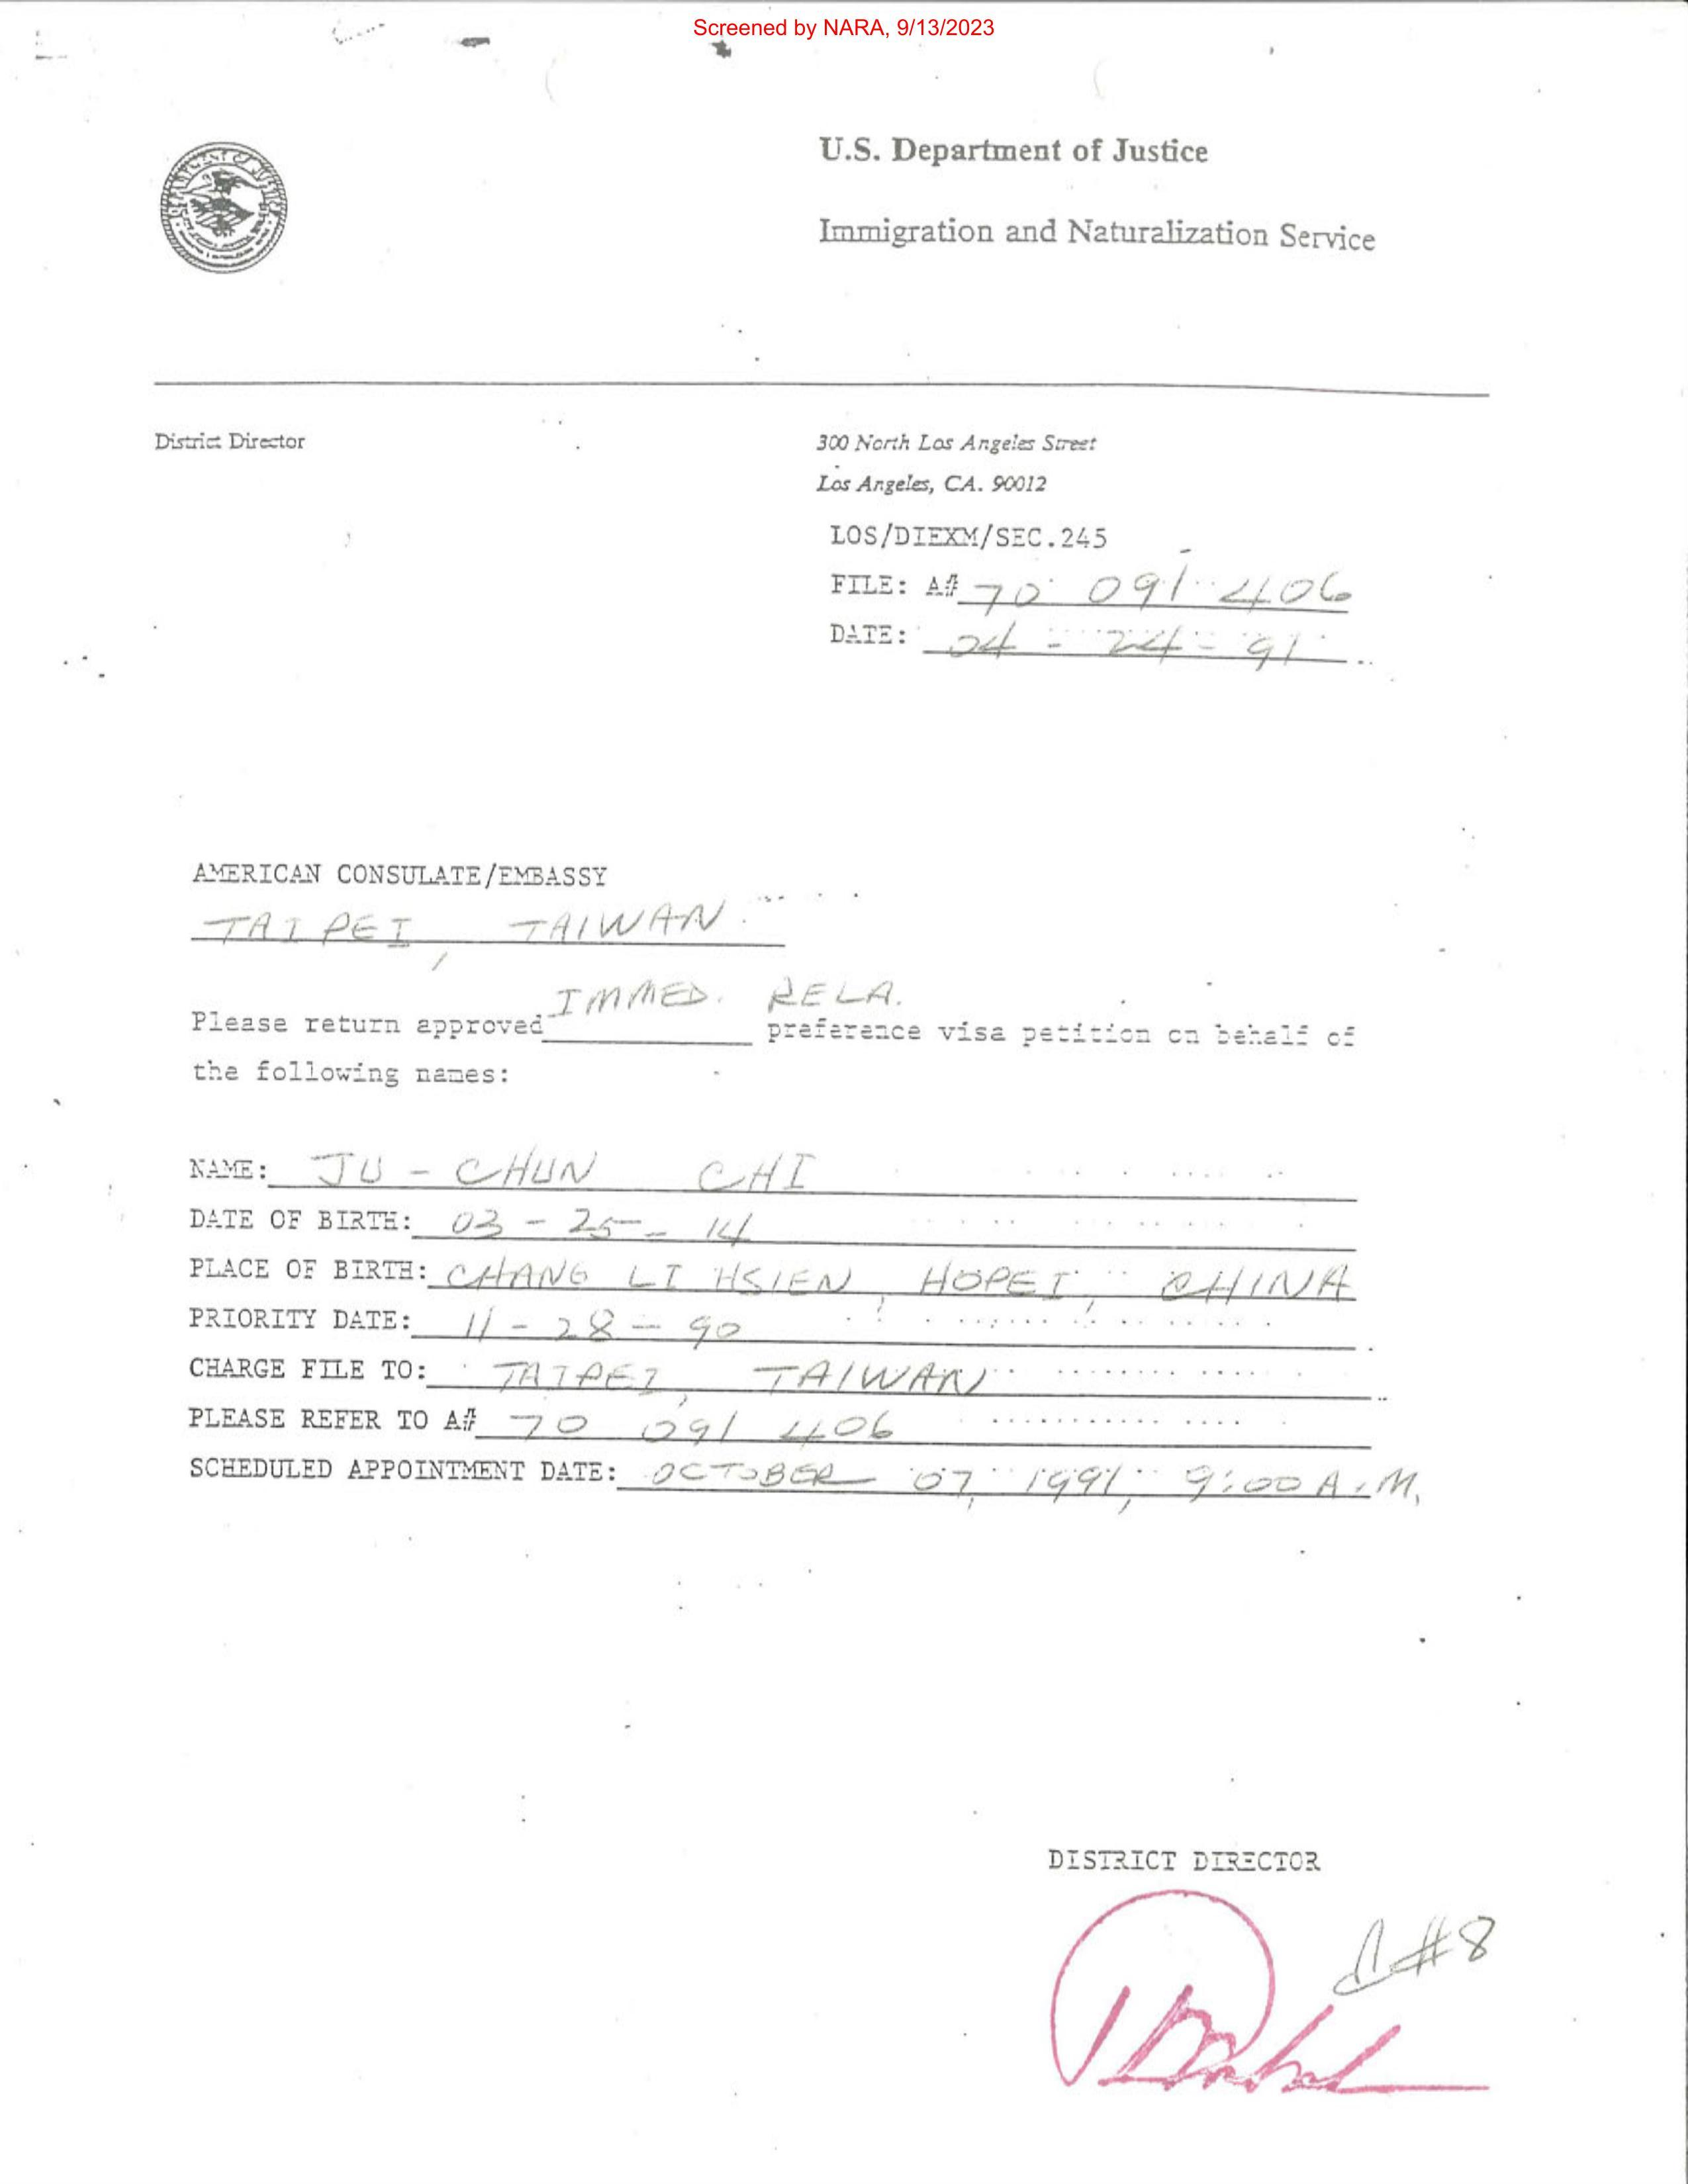 Screened by NARA, 9/13/2023
U.S. Department of Justice
Immigration and Naturalization Service
District Director
300 North Los Angeles Street
Los Angeles, CA. 90012
LOS/DIEXM/SEC.245
FILE: A# 70 091 406
DATE: 04 - 24 - 91
AMERICAN CONSULATE/EMBASSY
TAIPEI, TAIWAN
Please return approved IMMED. RELA. preference visa petition on behalf of
the following names:
NAME: JU - CHUN CHI
DATE OF BIRTH: 03 - 25 - 14
PLACE OF BIRTH: CHANG LI HSIEN, HOPEI, CHINA
PRIORITY DATE: 11 - 28 - 90
CHARGE FILE TO: TAIPEI, TAIWAN
PLEASE REFER TO A# 70 091 406
SCHEDULED APPOINTMENT DATE: OCTOBER 07, 1991, 9:00 A.M.
DISTRICT DIRECTOR
#8